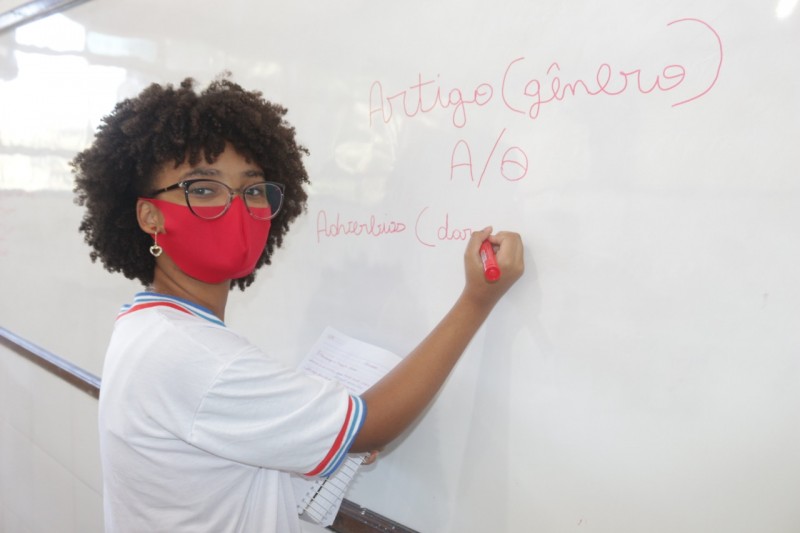 Artigo (gênero)
A/O
Adverbios (dar